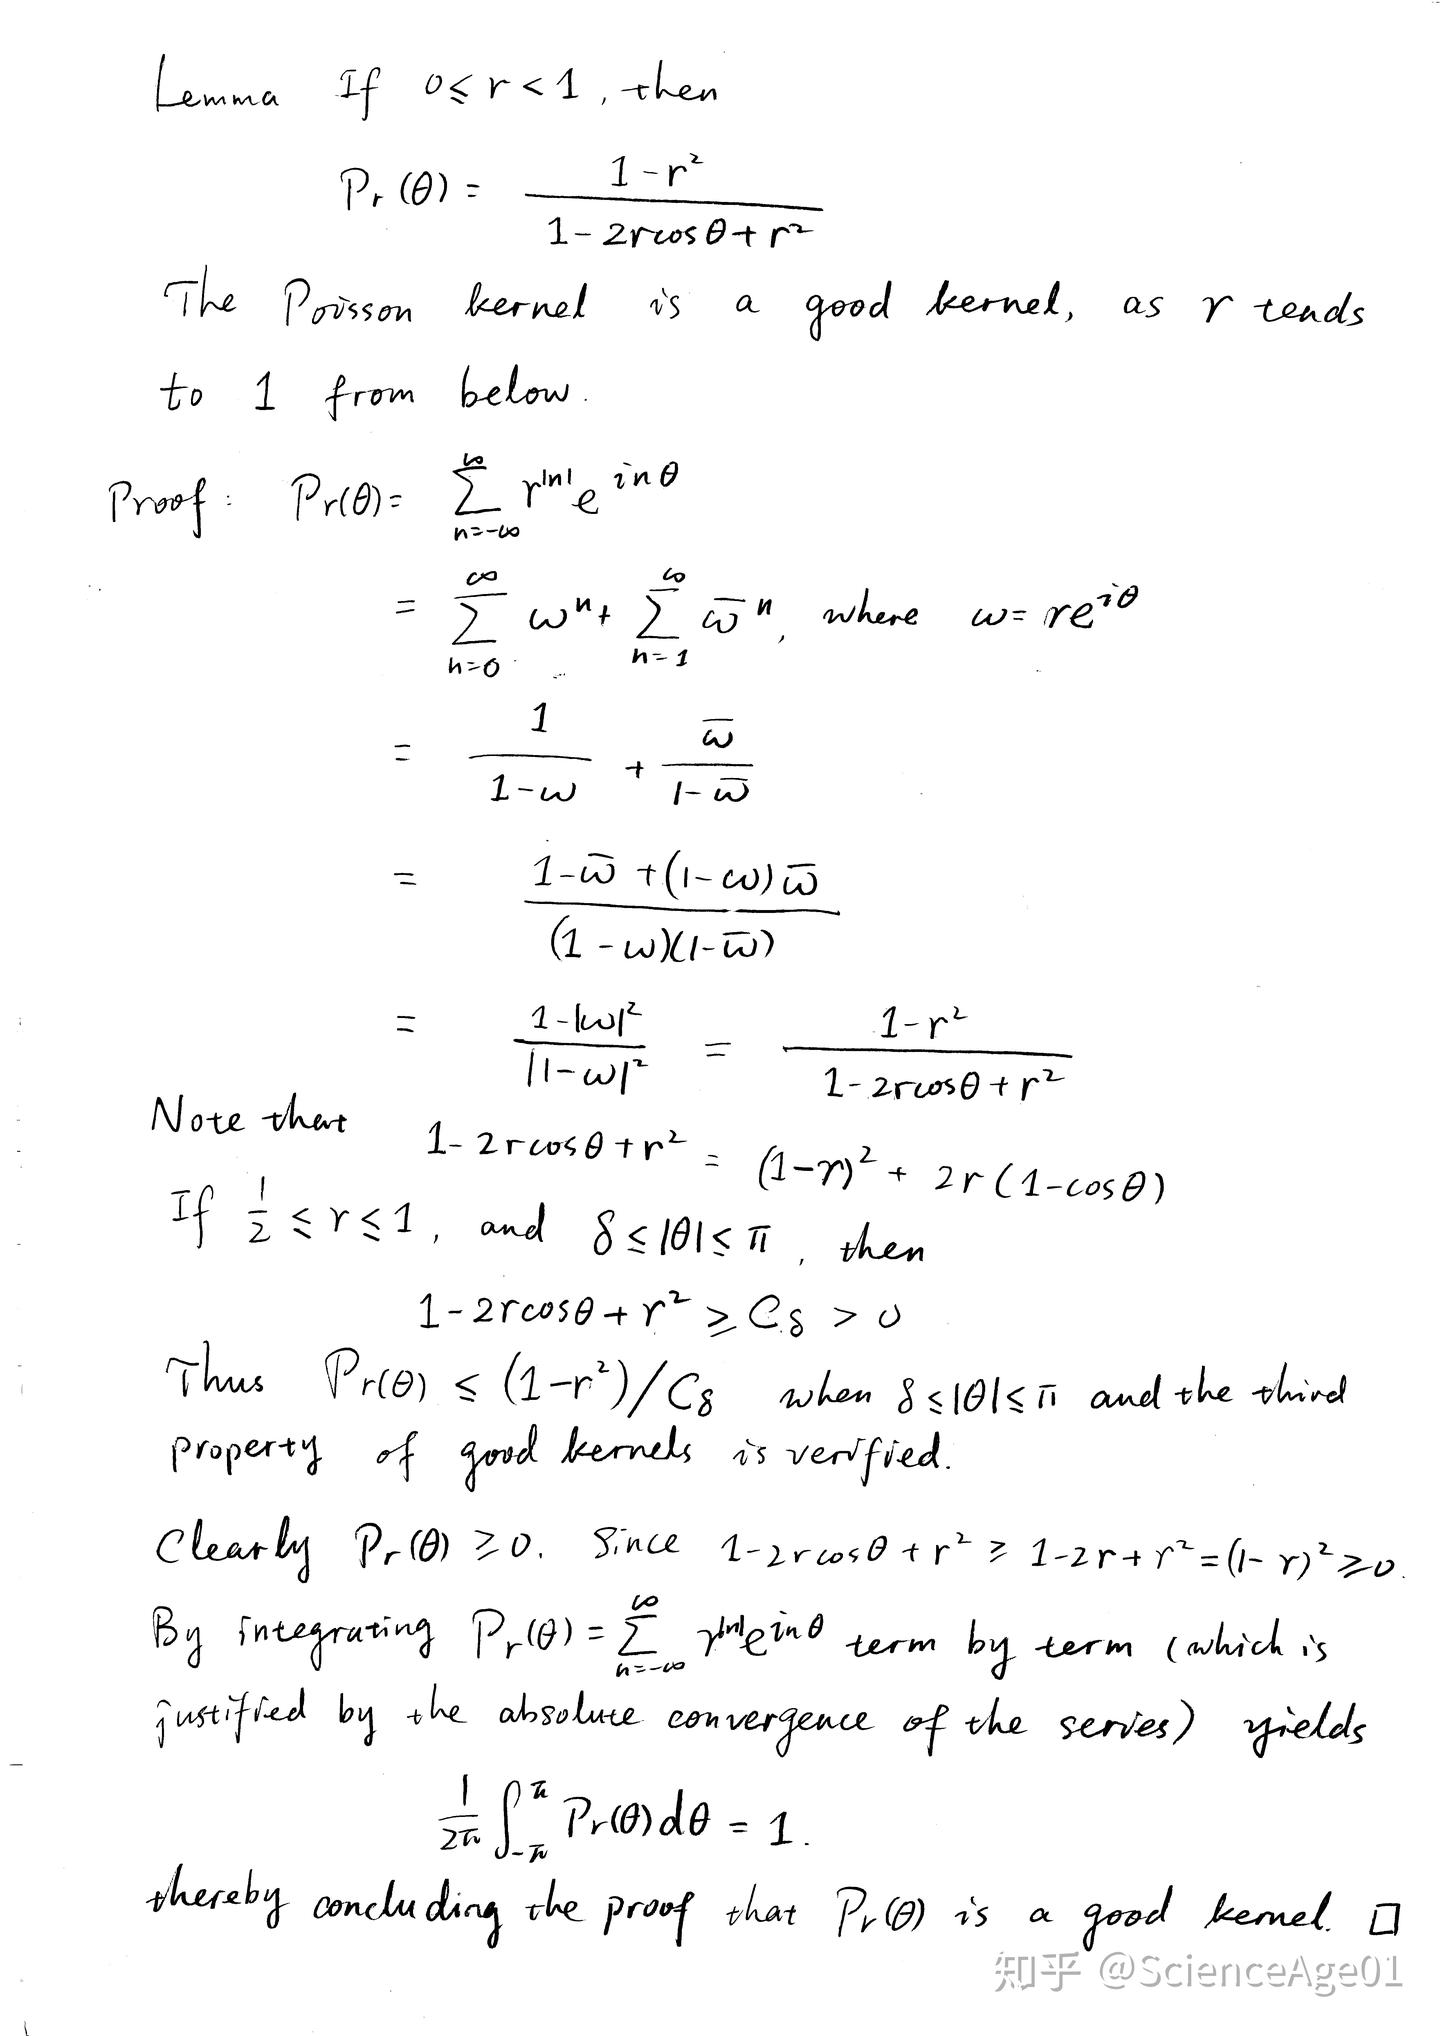 Lemma If 0 ≤ r < 1, then
P_r(θ) = \frac{1-r^2}{1-2r\cosθ+r^2}
The Poisson kernel is a good kernel, as r tends
to 1 from below.
Proof: P_r(θ) = \sum_{n=-∞}^{∞} r^{|n|} e^{inθ}
= \sum_{n=0}^{∞} ω^n + \sum_{n=1}^{∞} \bar{ω}^n, where ω = re^{iθ}
= \frac{1}{1-ω} + \frac{\bar{ω}}{1-\bar{ω}}
= \frac{1-\bar{ω}+(1-ω)\bar{ω}}{(1-ω)(1-\bar{ω})}
= \frac{1-|ω|^2}{|1-ω|^2} = \frac{1-r^2}{1-2r\cosθ+r^2}
Note that 1-2r\cosθ+r^2 = (1-r)^2 + 2r(1-\cosθ)
If \frac{1}{2} ≤ r ≤ 1, and δ ≤ |θ| ≤ π, then
1-2r\cosθ+r^2 ≥ C_δ > 0
Thus P_r(θ) ≤ (1-r^2)/C_δ when δ ≤ |θ| ≤ π and the third
property of good kernels is verified.
Clearly P_r(θ) ≥ 0. Since 1-2r\cosθ+r^2 ≥ 1-2r+r^2 = (1-r)^2 ≥ 0.
By integrating P_r(θ) = \sum_{n=-∞}^{∞} r^{|n|} e^{inθ} term by term (which is
justified by the absolute convergence of the series) yields
\frac{1}{2π} \int_{-π}^{π} P_r(θ) dθ = 1.
thereby concluding the proof that P_r(θ) is a good kernel. □
知乎 @ScienceAge01